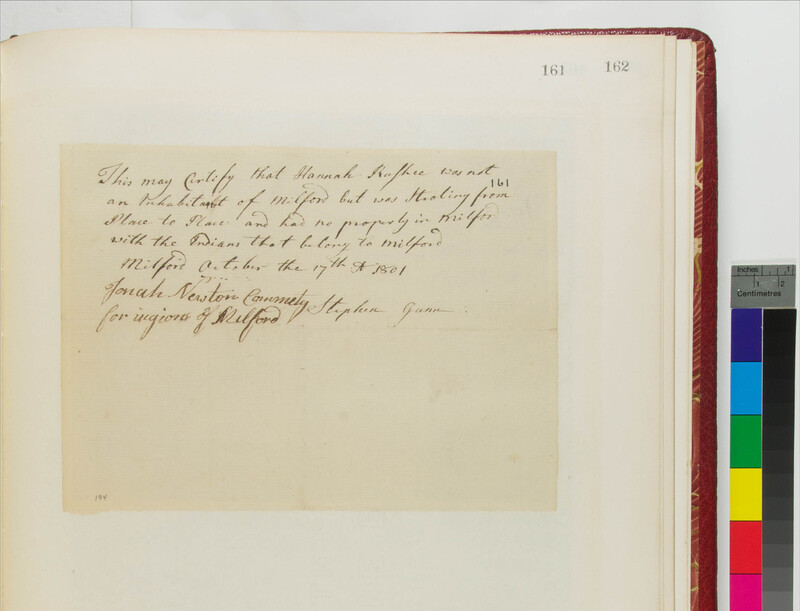 161 162
This may Certify that Hannah was not
161
an Inhabitant of Milford but was Stroling from
Place to Place and had no property in Milford
with the Indians that belong to Milford
Milford October the 17th A 1801
Jonah Newton Commety
Stephen Gunn
for ingions of Milford
194
Inches 1
1 2
Centimetres